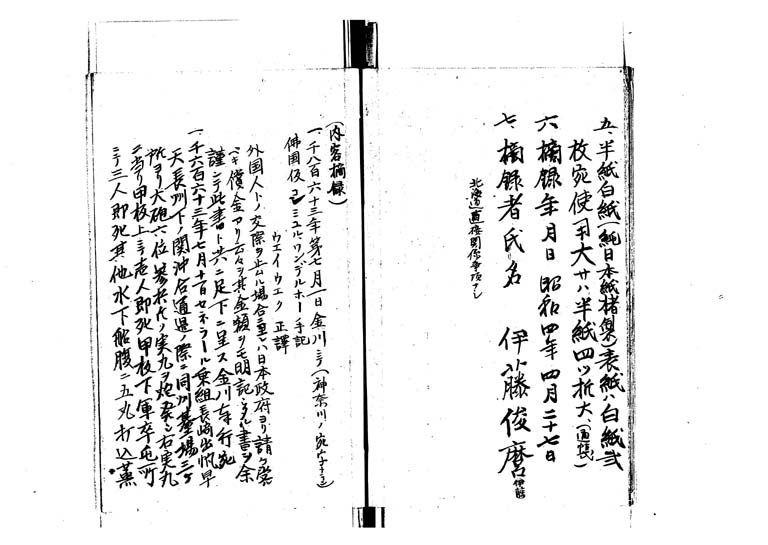 五、半紙白紙(純日本紙楮製)表紙ハ白紙弐
枚宛使用大サハ半紙四ツ折大、(通帳)
六、摘録年月日 昭和四年四月二十七日
七、摘録者氏名 伊藤俊麿
北海道直接関係事項ナシ
(内容摘録)
一、千八百六十三年第七月一日金川ニテ(神奈川ノ宛字ナラン)
佛国仮コンシュルワンデルホー手記
ウエイウエク 正譯
外国人トノ交際ヲ止ムル場合ニ至レハ日本政府ヨリ請ケ容
ベキ償金アリ云々ヲ其金額ヲモ明記シタル書ヲ余
謹ンテ此書ト共ニ足下ニ呈ス金川奉行宛
一、千六百六十三年七月十一日セネラール乗組長崎出帆早
天長州下ノ関沖合通過ノ際ニ同州墓場三ケ
所ヨリ大砲六位ノ実丸ヲ炮発シ右実丸
ニ当リ甲板上ニテ壱人即死甲板下軍卒屯所
ニテ三人即死其他水下船腹ニ五丸打込薫